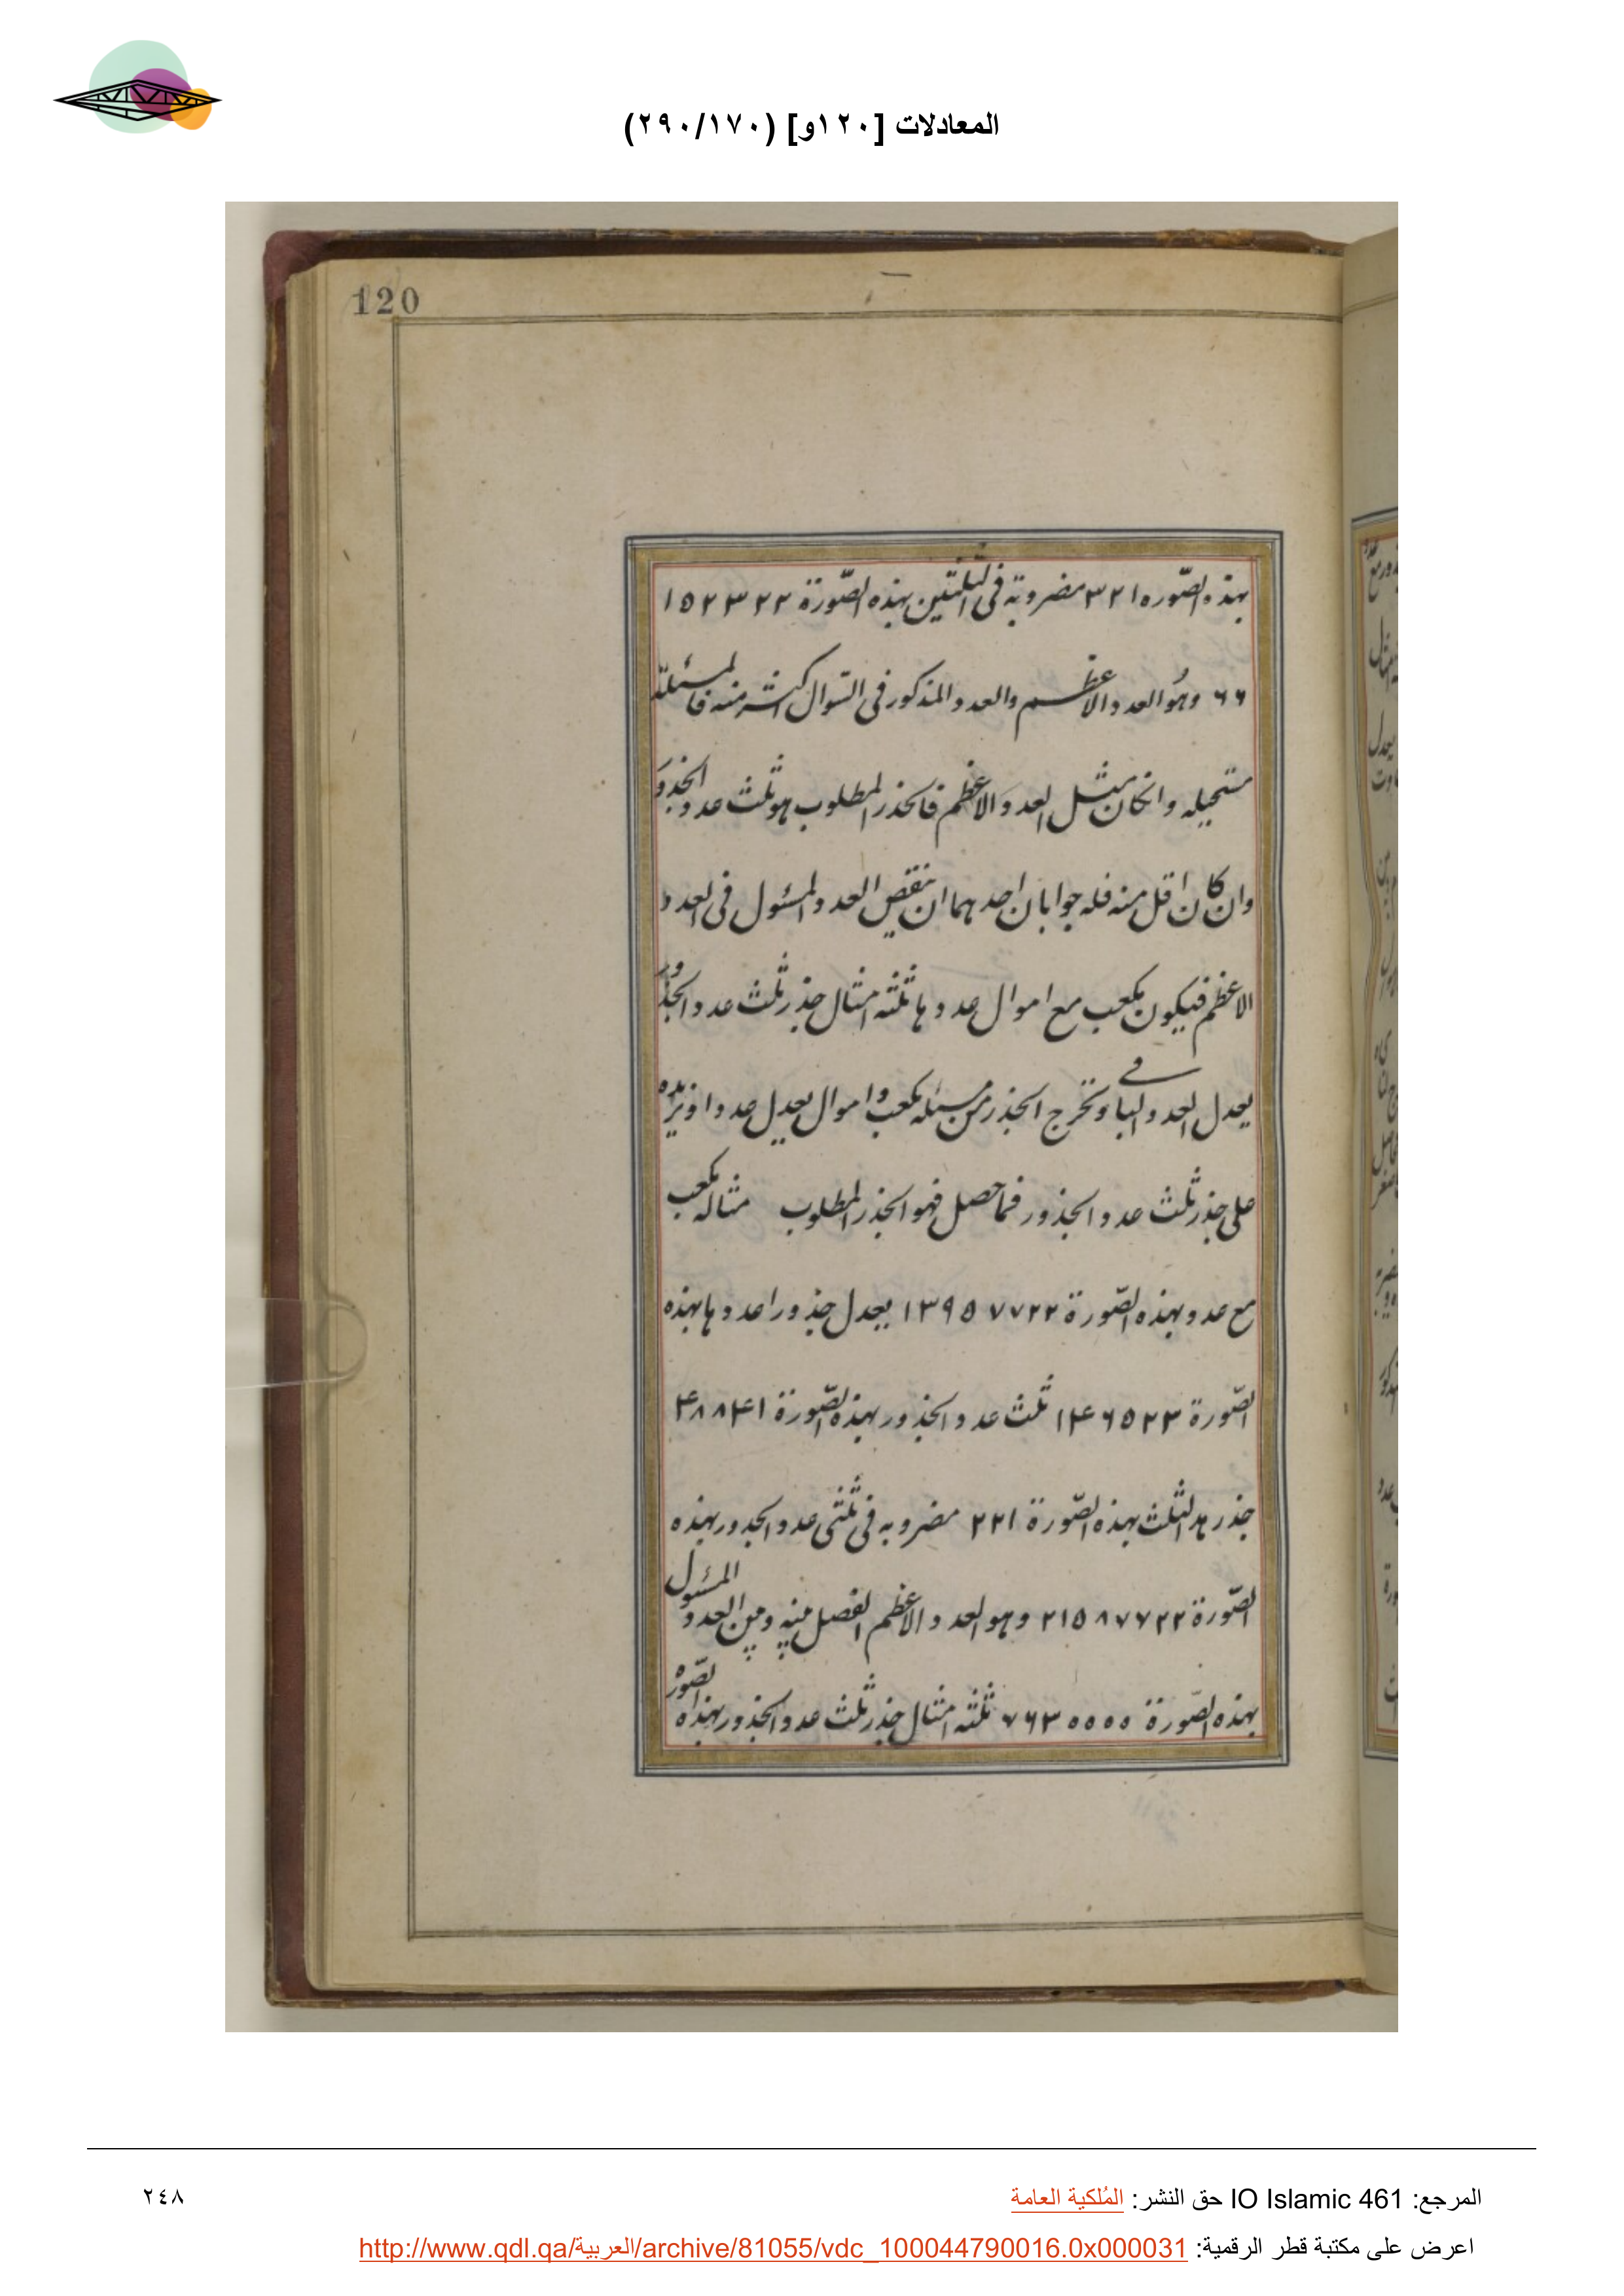 المعادلات [١٢٠و] (٢٩٠/١٧٠)
120
بهذه الصّوره ٣٢١ مضروبة فى الثلثين بهذه الصّورة ١٥٢٣٢٢
٦٦ وهُو العدد الاعظم والعدد المذكور فى السّوال اكثر منه فالمسئلة
مستحيله وانكان مثل العدد الاعظم فالجذر المطلوب هو ثلث عدد الجذور
وان كان اقل منه فله جوابان احدهما ان ينقص العدد المسئول فى العدد
الاعظم فيكون مكعب مع اموال عددها ثلثة امثال جذر ثلث عدد الجذور
يعدل العدد الباقى ونخرج الجذر من مسئله مكعب واموال يعدل عددا ونزيده
على جذر ثلث عدد الجذور فما حصل فهو الجذر المطلوب مثاله مكعب
مع عدد بهذه الصّورة ١٣٩٥٧٧٢٢ يعدل جذورا عددها بهذه
الصّورة ١۴٦٥٢٣ ثلث عدد الجذور بهذه الصّورة ۴٨٨۴١
جذر هذا الثلث بهذه الصّورة ٢٢١ مضروبه فى ثلثى عدد الجدور بهذه
الصّورة ٢١٥٨٧٧٢٢ وهو العدد الاعظم الفصل منه ومن العدد المسئول
بهذه الصّورة ٧٦٣٠٠٠٠ ثلثة امثال جذر ثلث عدد الجذور بهذه الصّوره
المرجع: IO Islamic 461 حق النشر: المُلكية العامة
٢٤٨
اعرض على مكتبة قطر الرقمية: http://www.qdl.qa/العربية/archive/81055/vdc_100044790016.0x000031